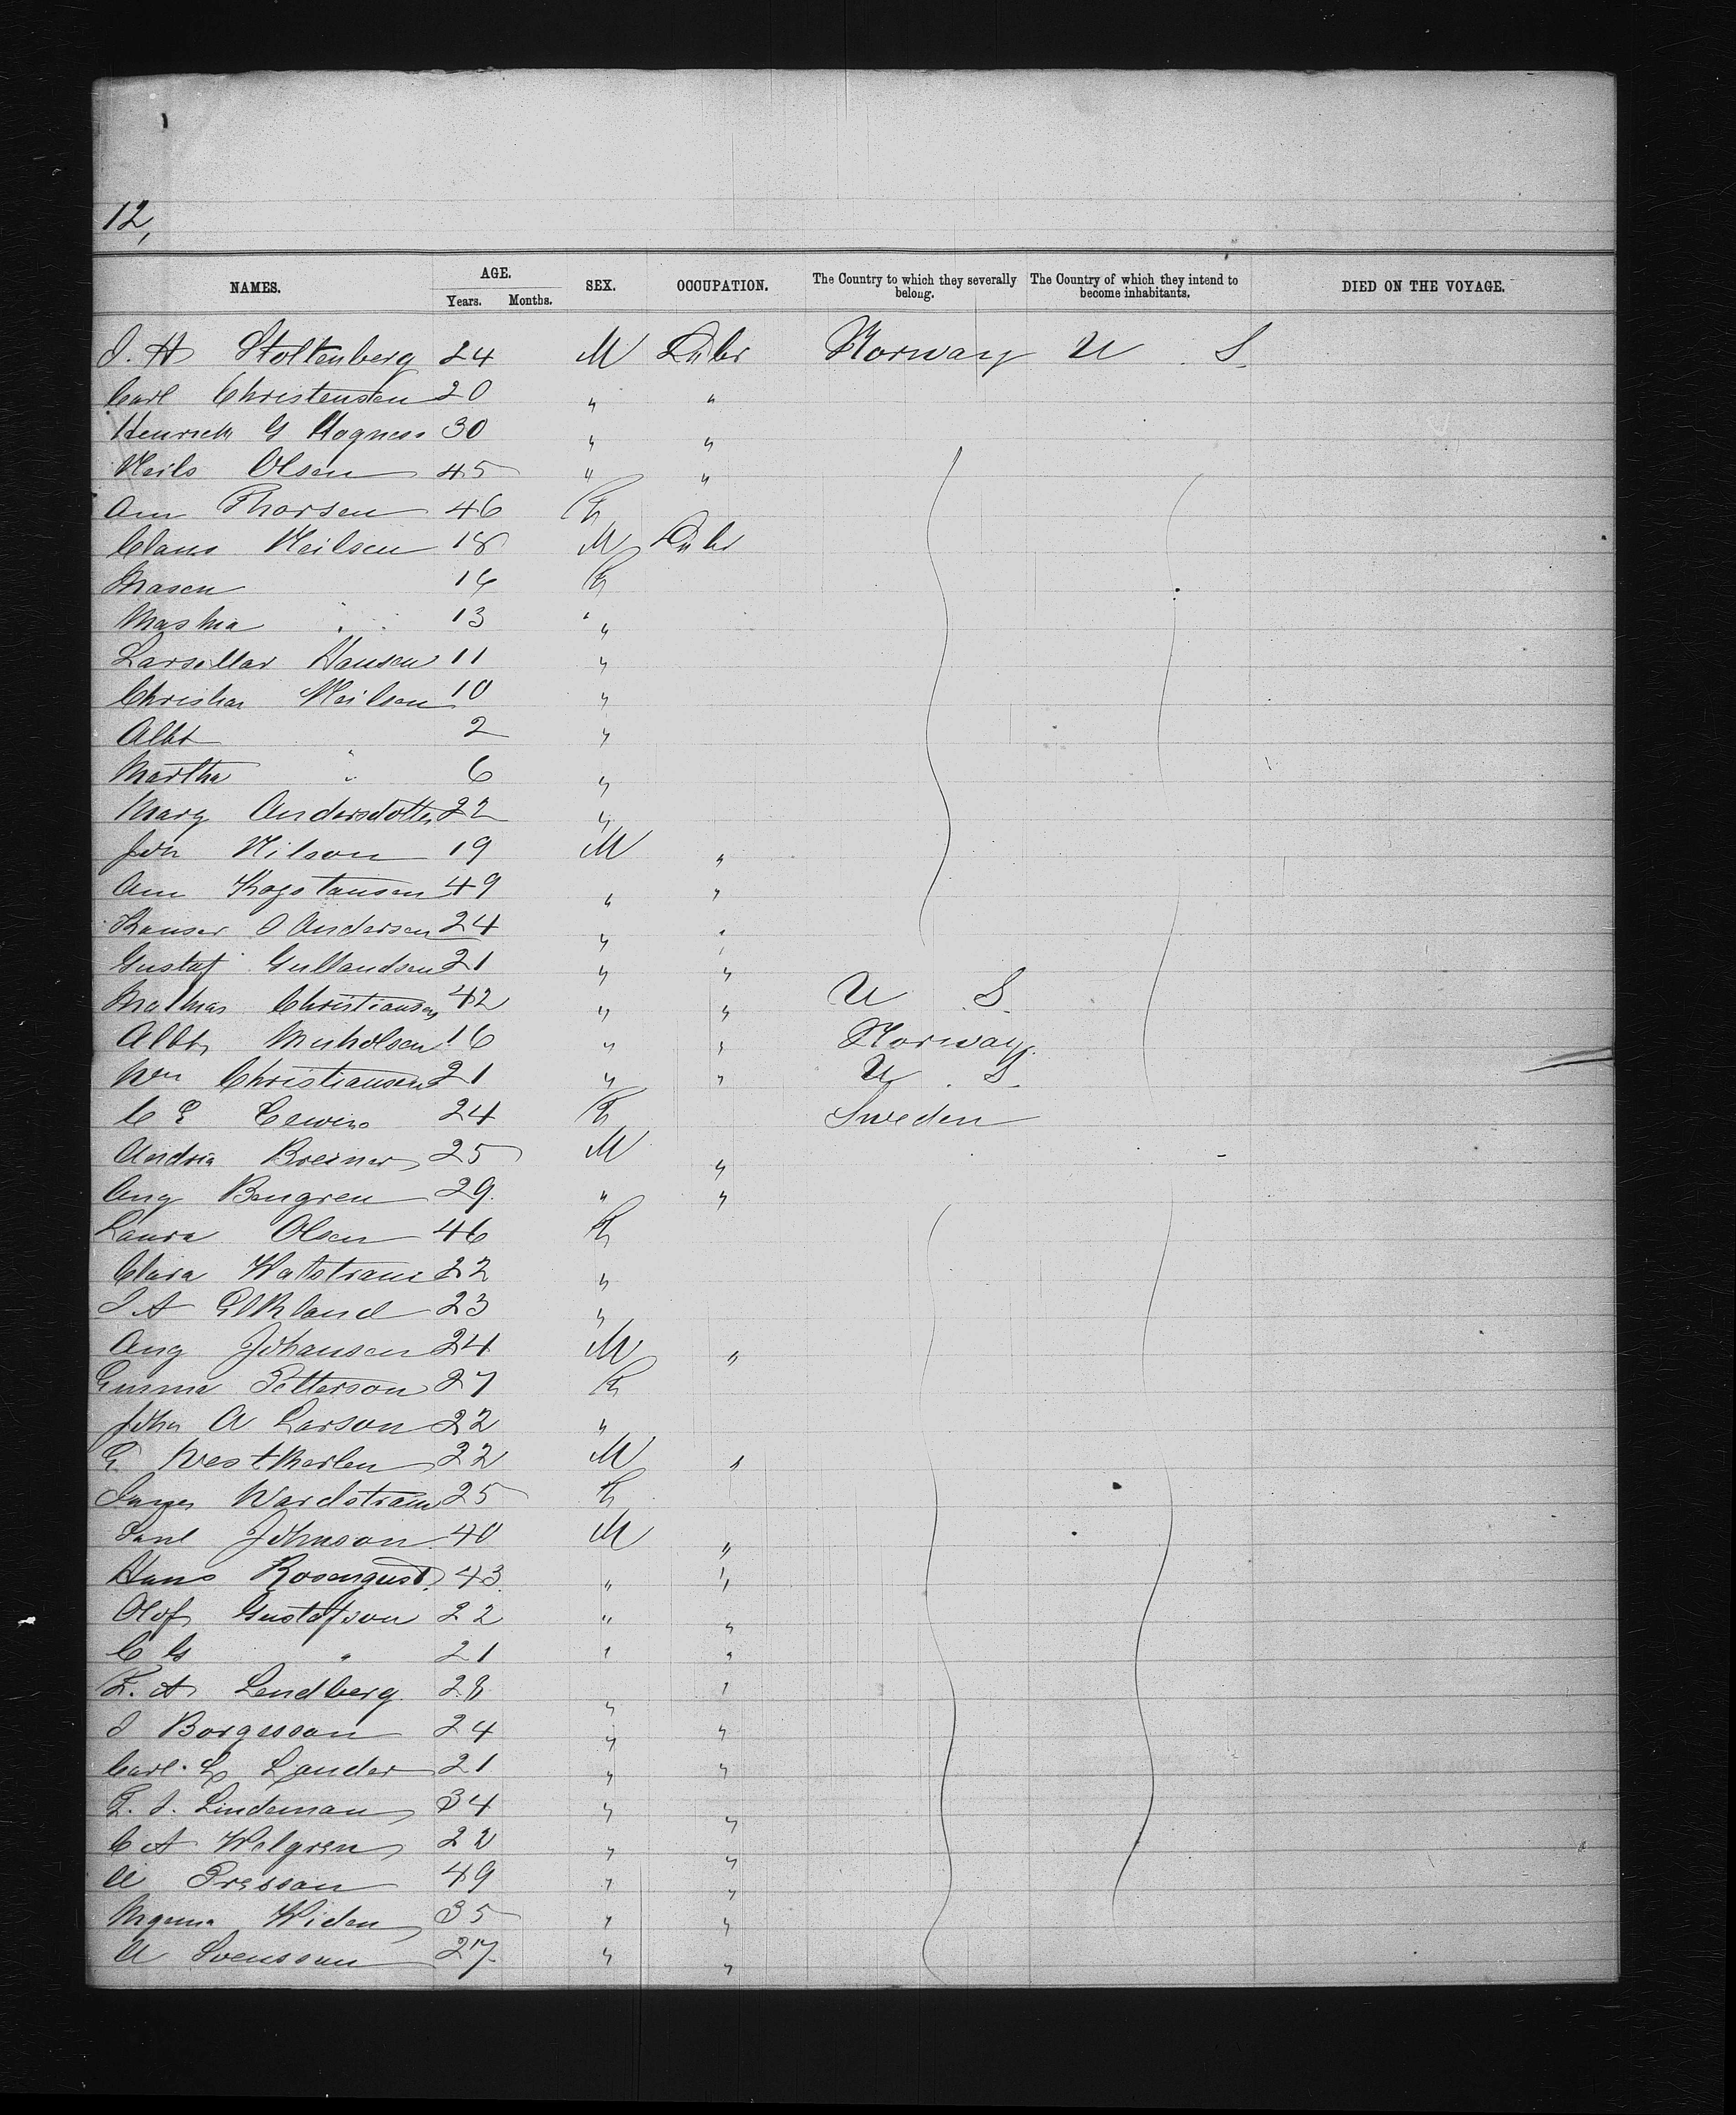 12,
NAMES. AGE. SEX. OCCUPATION. The Country to which they severally belong. The Country of which they intend to become inhabitants. DIED ON THE VOYAGE.
Years. Months.
J. H Stoltenberg 24 M Labr Norway U S.
Carl Christensen 20 " "
Henrich G Hogness 30 " "
Neils Olsen 45 " "
Am Thorsen 46 F
Claus Neilsen 18 M Labr
Masen 14 F
Mashia " 13 "
Hansen 11 "
Christian Neilsen 10 "
Albt 2 "
Martha " 6 "
Mary Andersdotter 22 "
Jon Nilson 19 M "
Am 49 " "
J Andersen 24 " "
Gustaf Gullandsen 21 " "
Mathias Christiansen 42 " " U S.
Albt 16 " " Norway
Wm Christiansen 21 " " U S.
C E 24 F Sweden
Andria 25 M "
Aug Bengren 29. " "
Laura Olsen 46 F
Clara 22 "
J A 23 "
Aug Johansen 24 M "
Emma Petterson 27 F
John A Larson 22 "
G 22 M "
25 F
Johnson 40 M "
Hans Rosenqust. 43 " "
Olof Gustafson 22 " "
C G " 21 " "
F. A Lendberg 28 " "
J Borgesson 24 " "
Carl. Lander 21 " "
F. J. Lindeman 34 " "
C A Welgren 22 " "
A Presson 49 " "
Widen 35 " "
A Svensson 27 " "